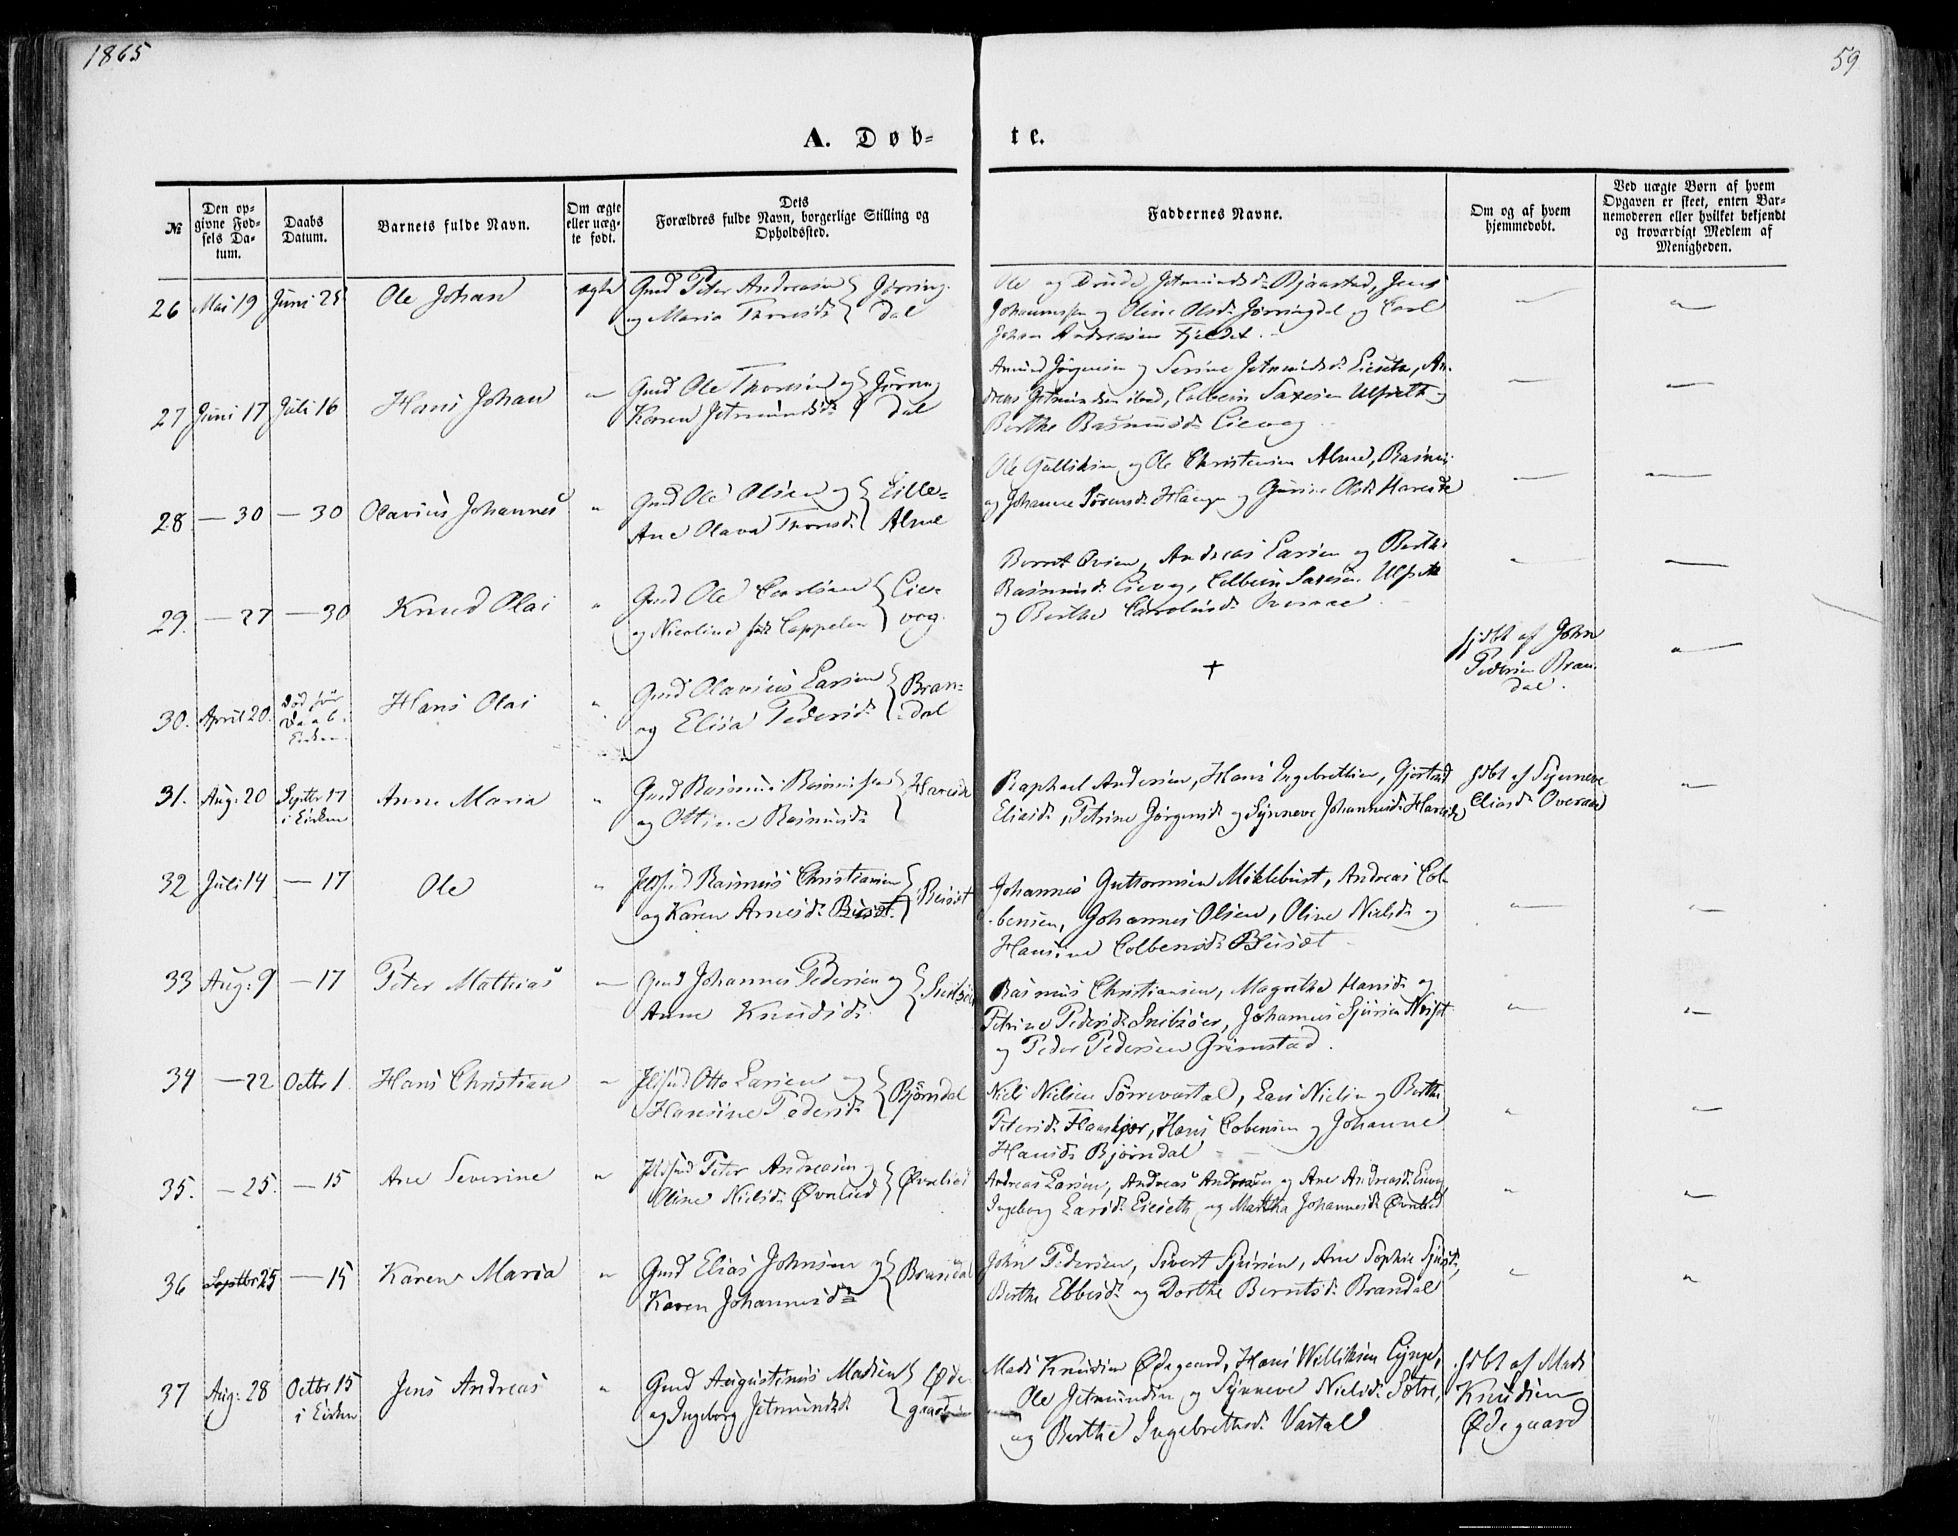 1865
59
A. Døb-
te.
№
Den op-
givne Fød-
sels Da-
tum.
Daabs
Datum.
Barnets fulde Navn.
Om ægte
eller uæg-
te født.
Dets
Forældres fulde Navn, borgerlige Stilling og
Opholdssted.
Faddernes Navne.
Om og af hvem
hjemmedøbt.
Ved uægte Børn af hvem
Opgaven er skeet, enten Bar-
nemoderen eller hvilket bekjendt
og troværdigt Medlem af
Menigheden.
26 Mai 19 Juni 25 Ole Johan ægte Gmd Peter Andreasen
og Maria Thoresd: Jørring-
dal
Ole og Drude Jetmundsd: Bjaastad, Jens
Johannessen og Oline Olsd: Jørringdal og Carl
Johan Andreasen Fjeldet.
27 Juni 17 Juli 16 Hans Johan " Gmd Ole Thoresen og
Karen Jetmundsd: Jørring
dal
Amund Jørgensen og Serine Jetmundsd: Liesete, An-
dreas Jetmundsen ibid, Colbein Saxesen Ulfseth og
Berthe Rasmusd: Lievog
28 — 30 — 30 Olavius Johannes " Gmd Ole Olsen og
Ane Olava Thoresd: Lille-
Alme
Ole Gulliksen og Ole Christensen Alme, Rasmus
og Johanne Sørensd: Haugen og Gurine Olsd: Hareide
29. — 27 — 30 Knud Olai " Gmd Ole Carlsen
og Nicoline født Cappelen Lie-
vog.
Bernt Ovsen, Andreas Larsen og Berthe
Rasmusd: Lievog, Colbein Saxesen Ulfsete
og Berthe Carolusd: Overaae
30. April 20. Død før
Daab i
Kirken. Hans Olai " Gmd Olavius Larsen
og Elisa Pedersd: Bran-
dal
+
hjdbt af John
Pedersen Bran-
dal.
31. Aug: 20 Septbr 17
i Kirken Anne Maria " Gmd Rasmus Rasmussen
og Ottine Rasmusd: Hareide
Raphael Andersen, Hans Ingebrethsen, Gjertrud
Eliasd:, Petrine Jørgensd: og Synneve Johannesd: Hareide
hjdbt af Synneve
Eliasd: Overaae
32 Juli 14 — 17 Ole " Rasmus Christiansen
og Karen Arnesd: Busæt. Busæt
Johannes Guttormsen Mikkebust, Andreas Col-
bensen, Johannes Olsen, Oline Nielsd: og
Hansine Colbensd: Busæt
33 Aug: 9 — 17 Peter Mathias " Gmd Johannes Pedersen og
Anne Knudsd: Snibsøer
Rasmus Christiansen, Magrethe Hansd: og
Petrine Pedersd: Snibsøer, Johannes Sjursen
og Peder Pedersen Grimstad.
34 — 22 Octbr 1. Hans Christian " Otto Larsen og
Hansine Pedersd: Bjørndal
Niels Nielsen Sørrevartal, Lars Nielsen og Berthe
Petersd: Flaaskjær, Hans Cobensen og Johanne
Hansd: Bjørndal
35. — 25. — 15 Ane Severine " Peter Andreasen og
Oline Nielsd: Øvrelied Øvrelied
Andreas Larsen, Andreas Andresen og Ane Andreasd: Lievog,
Ingeborg Larsd: Lieseth og Martha Johannesd: Øvrelied
36 Septbr 25 — 15 Karen Maria " Gmd Elias Johnsen og
Karen Johannesd: Brandal
John Pedersen, Sivert Sjursen, Ane Sophie Sjursd:,
Berthe Ebbesd: og Dorthe Berntsd: Brandal
37 Aug: 28 Octbr 15
i Kirken Jens Andreas " Gmd Augustinus Madsen
og Ingeborg Jetmundsd: Øde
gaard
Mads Knudsen Ødegaard, Hans Williksen Lynge,
Ole Jetmundsen og Synneve Nielsd: Sætre,
og Berthe Ingebrethsd: Vartal
hjdbt af Mads
Knudsen
Ødegaard